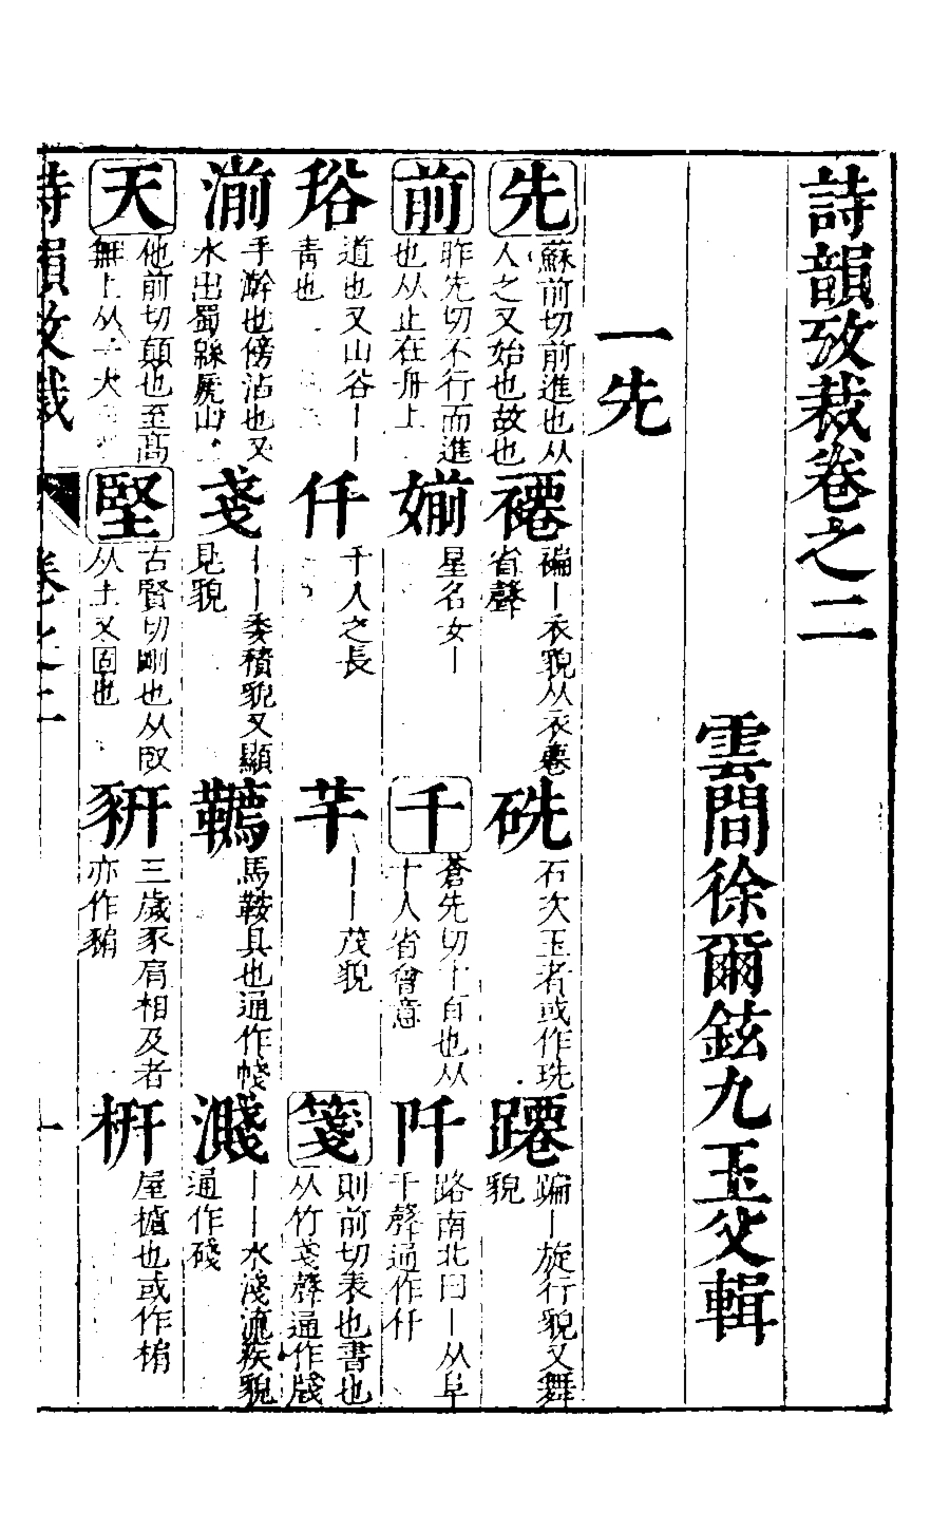 詩韻攷裁卷之二
雲間徐爾鉉九玉父輯
一先
先 蘇前切前進也从人之又始也故也 褼 褊丨衣貌从衣䙴省聲 硄 石次玉者或作珗 蹮 蹁丨旋行貌又舞貌
前 昨先切不行而進也从止在舟上 媊 星名女丨 千 蒼先切十百也从十人省會意 阡 路南北曰丨从阜千聲通作仟
䜭 道也又山谷丨丨青也 仟 千人之長 芊 丨丨茂貌 箋 則前切表也書也从竹戔聲通作牋
湔 手澣也傍沾也又水出蜀緜虒山 戔 丨丨委積貌又顯見貌 韉 馬鞍具也通作帴 濺 丨丨水淺流疾貌通作碊
天 他前切顛也至高無上从一大 堅 古賢切剛也从臤从土又固也 豣 三歲豕肩相及者亦作豜 枅 屋櫨也或作㭓
詩韻攷裁 卷之二 一